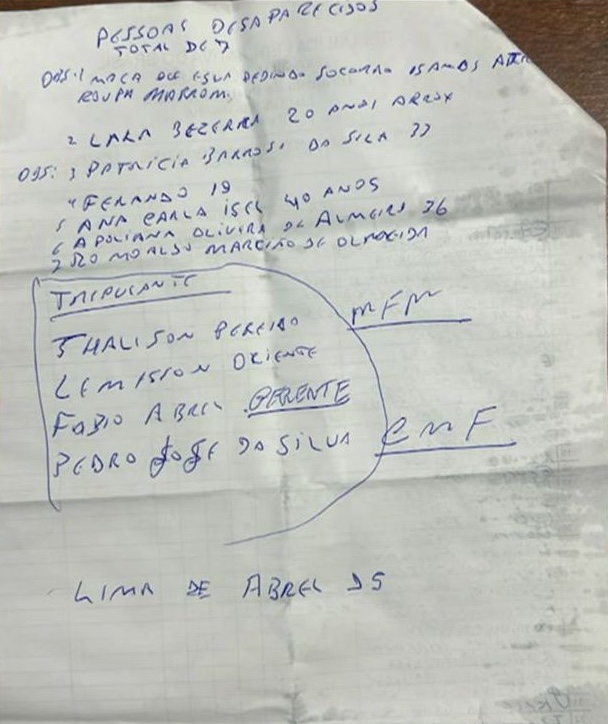 PESSOAS DESAPARECIDOS
TOTAL DE 7
OBS: 1 MOÇA QUE ESUA PEDINDO SOCORRO 15 ANOS
ROUPA MARROM.
2 LARA BEZERRA 20 ANOS APROX
OBS: 3 PATRICIA BARROSI DA SILA 37
4 FERANDO 19
5 ANA CARLA ISEL 40 ANOS
6 APOLIANA OLIVIRA DE ALMEIRD 36
7 ROMOALDO MARCIÃO DE OLMEIDA
TRIPULANTE
THALISON PEREIRO
MFM
LEMISSON ORIENTE
FABIO ABREL GERENTE
PEDRO JOSE DA SILVA
CMF
LIMA DE ABREL